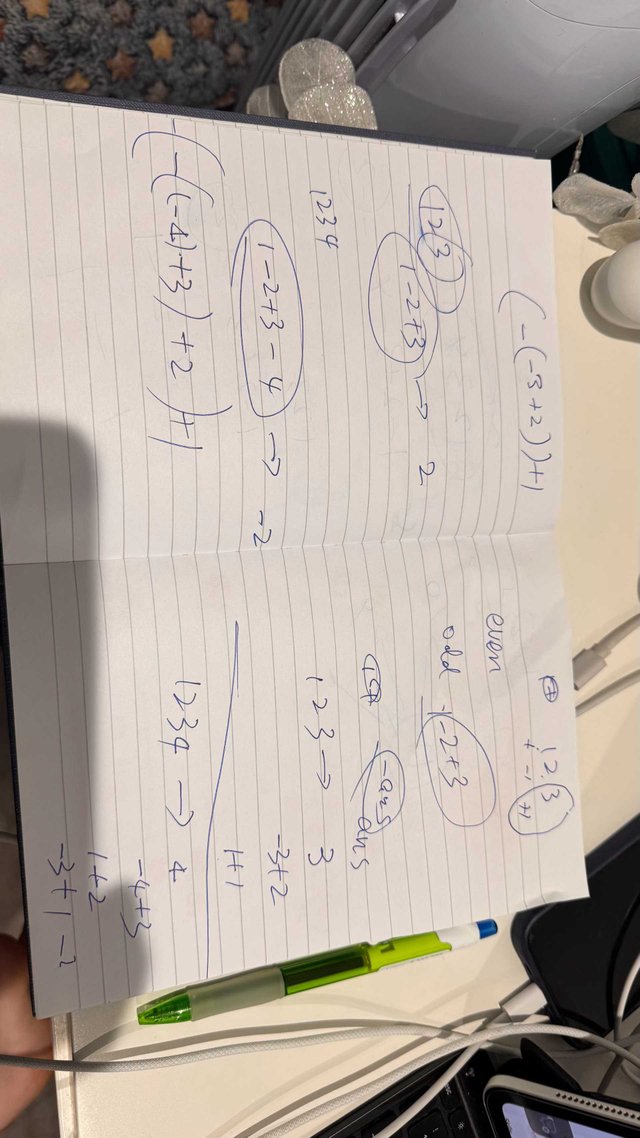 (-(-3+2))+1
123
1-2+3 → 2
1234
1-2+3-4 → -2
(-(-4)+3)+2)+1
1 2 3
+ - +
even
odd 1-2+3
-ans ans
1 2 3 → 3
-3+2
1+1
1234 → 4
-4+3
1+2
-3+1 -2